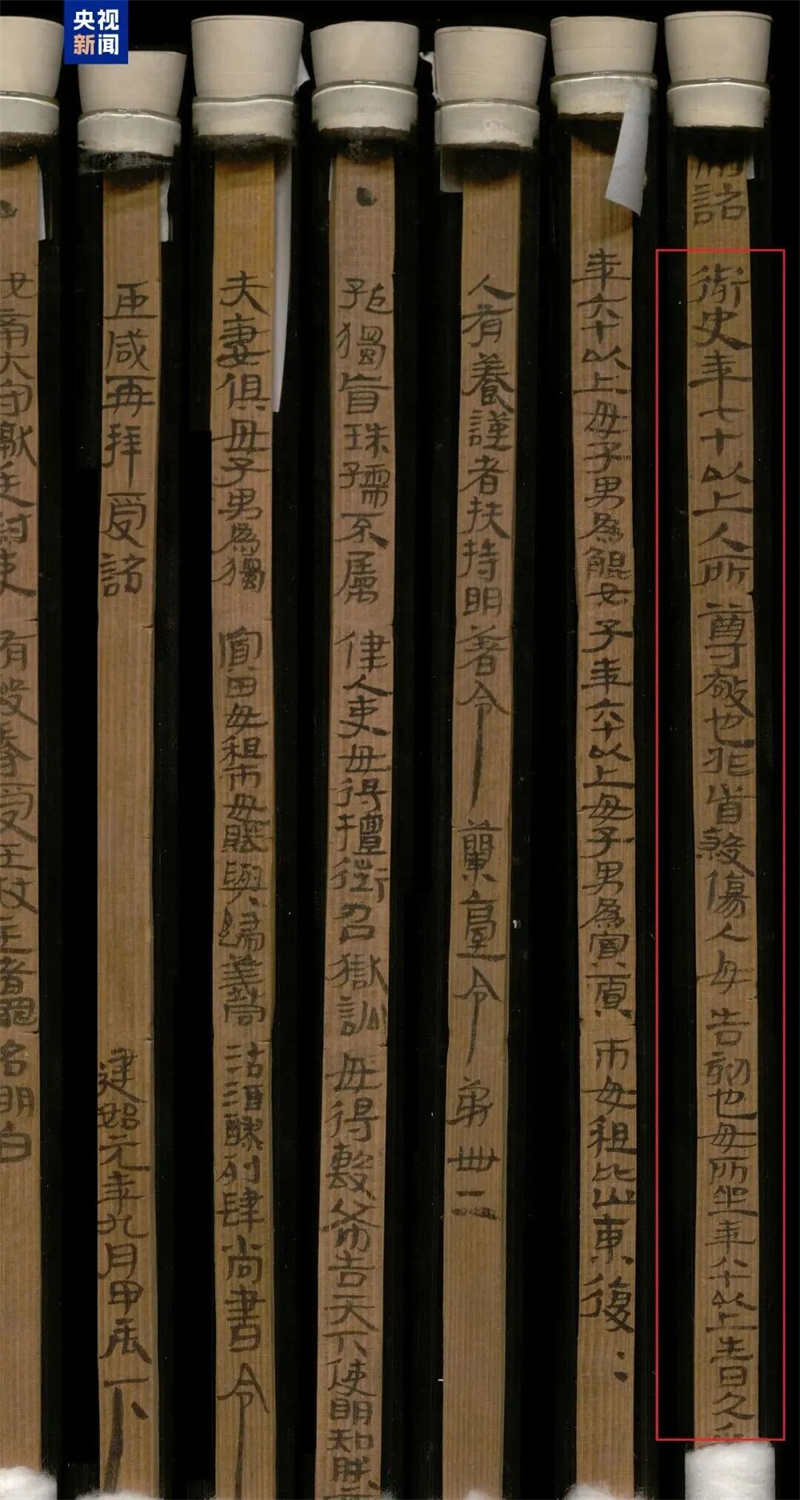 央视
新闻
制詔
御史年七十以上人所尊敬也非首殺傷人毋告劾也毋所坐年八十以上生日久乎
年六十以上毋子男為鯤女子年六十以上毋子男為寡賈市毋租比山東復
人有養謹者扶持明著令 蘭臺令第卌二
孤獨盲珠孺不屬 律人吏毋得擅徵召獄訟毋得毄布告天下使明知朕
夫妻俱毋子男為獨寡田毋租市毋賦與歸義同沽酒醪列肆尚書令
臣咸再拜受詔 建始元年九月甲辰下
汝南大守讞廷尉吏有毆辱受王杖主者罪名明白